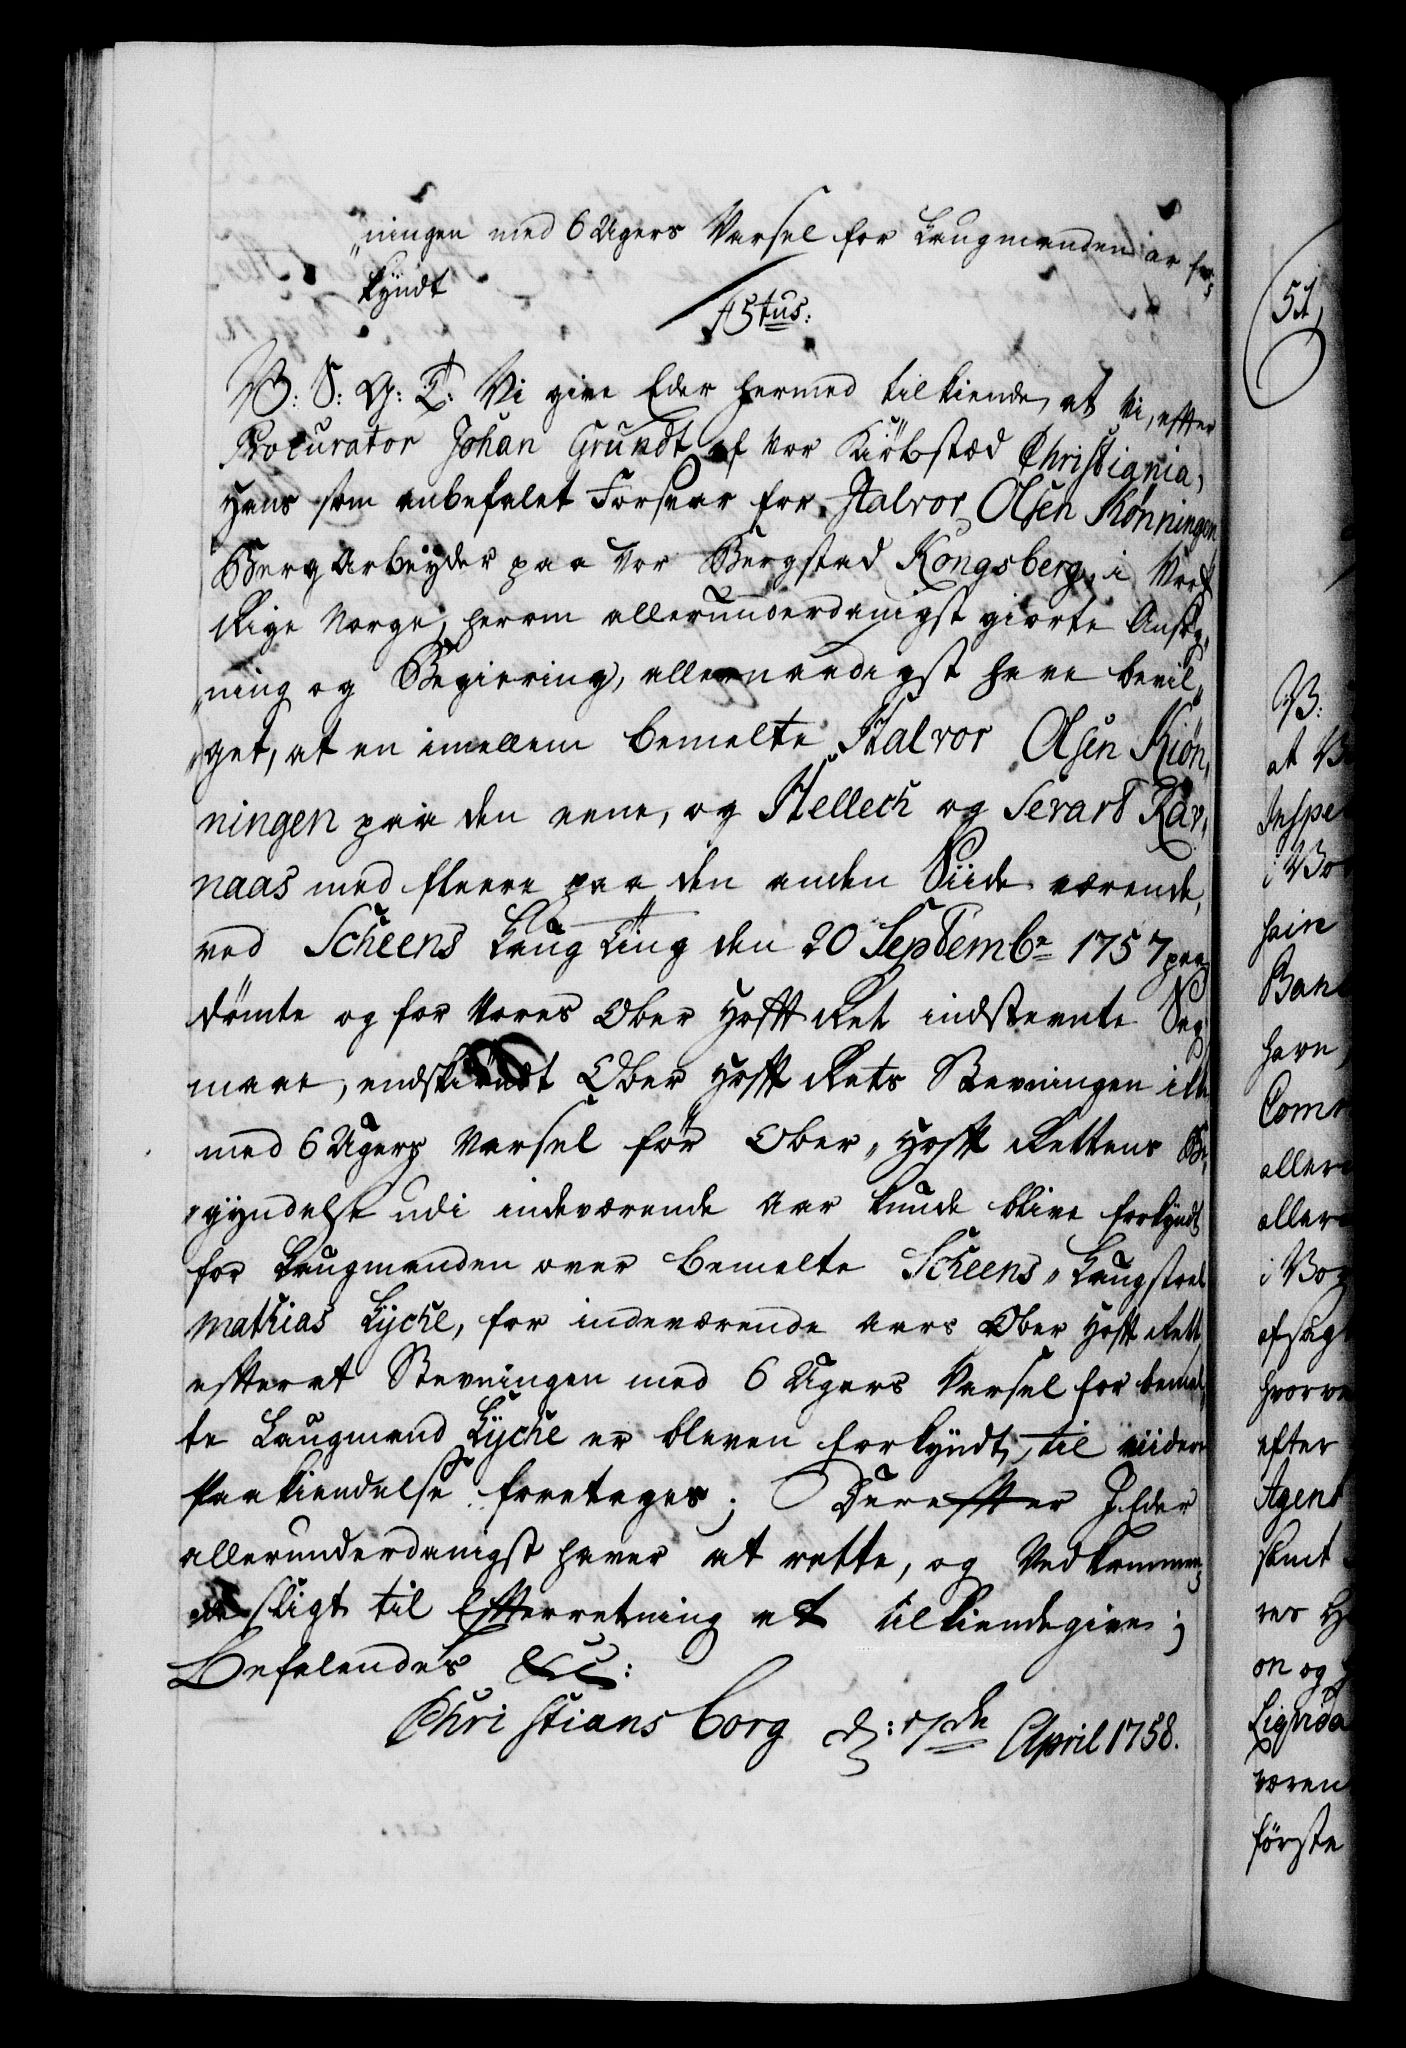 „ningen med 6 Ugers Varsel for Laugmanden er for„
kyndt
F5tus:
V: S: G: T: Vi give Eder hermed tilkiende, at Vi, efter
Procurator Johan Grundt af Vor Kiöbstæd Christiania,
Hans som anbefalet Forsvar for Halvor Olsen Kønningen
Berg Arbeyder paa Vor Bergstad Kongsberg, i Vort
Rige Norge, herom allerunderdanigst giorte Ansøg„
„ning og Begiering, allernaadigst have bevil„
„get, at en imellem bemelte Halvor Olsen Kiøn„
ningen paa den eene, og Hellech og Sevard Rav„
naas med fleere paa den anden Siide værende,
ved Scheens Laug Ting den 20 Septembr 1757 paa
dömte og for Vores Ober Hoff Ret indstevnte Sag
maae, endskiöndt Ober Hoff Rets Stevningen ikke
med 6 Ugers Varsel för Ober„ Hoff Rettens Be„
„gyndelse udi indeværende Aar kunde blive forkyndt
for Laugmanden over bemelte Scheens„ Laugstoel
Mathias Lyche, for indeværende Aars Ober Hoff Rett
efterat Stevningen med 6 Ugers Varsel for bemel„
te Laugmand Lyche er bleven forkyndt, til viidere
Paakiendelse foretages; Derefter I Eder
allerunderdanigst haver at rette, og Vedkommen„
de sligt til Efterretning at tilkiendegive;
Befalendes &c:
Christiansborg d: 17de April 1758.
51,
V:
at V
Inspe
i Vo
hain
Banc
havn,
Com
aller
aller
i Vo
afsagt
hvorve
efter
Agent
samt
res H
on og
Liqvida
væren
förste